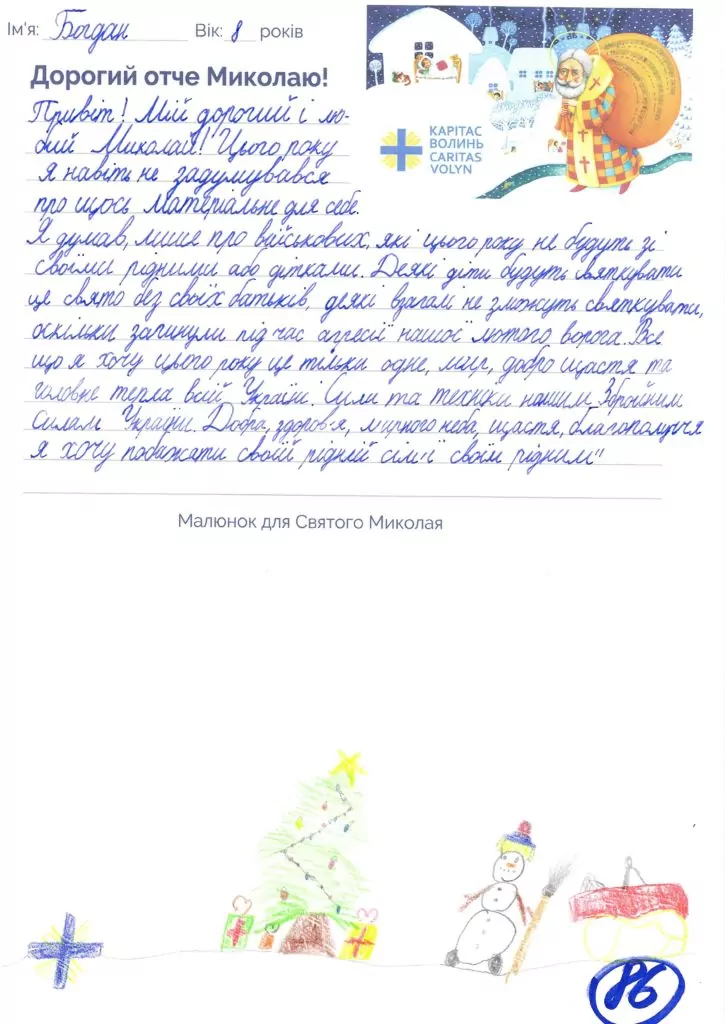 Ім'я: Богдан Вік: 8 років
Дорогий отче Миколаю!
КАРІТАС
ВОЛИНЬ
CARITAS
VOLYN
Привіт! Мій дорогий і лю-
бий Миколай! Цього року
я навіть не задумувався
про щось матеріальне для себе.
Я думав, лише про військових, які цього року не будуть зі
своїми рідними або дітками. Деякі діти будуть святкувати
це свято без своїх батьків, деякі взагалі не зможуть святкувати,
оскільки загинули під час агресії нашого лютого ворога. Все
що я хочу цього року це тільки одне, мир, добро щастя та
головне тепла всій Україні. Сили та техніки нашим Збройним
Силам України. Добра, здоров'я, мирного неба, щастя, благополуччя
я хочу побажати своїй рідній сім'ї своїм рідним"
Малюнок для Святого Миколая
86